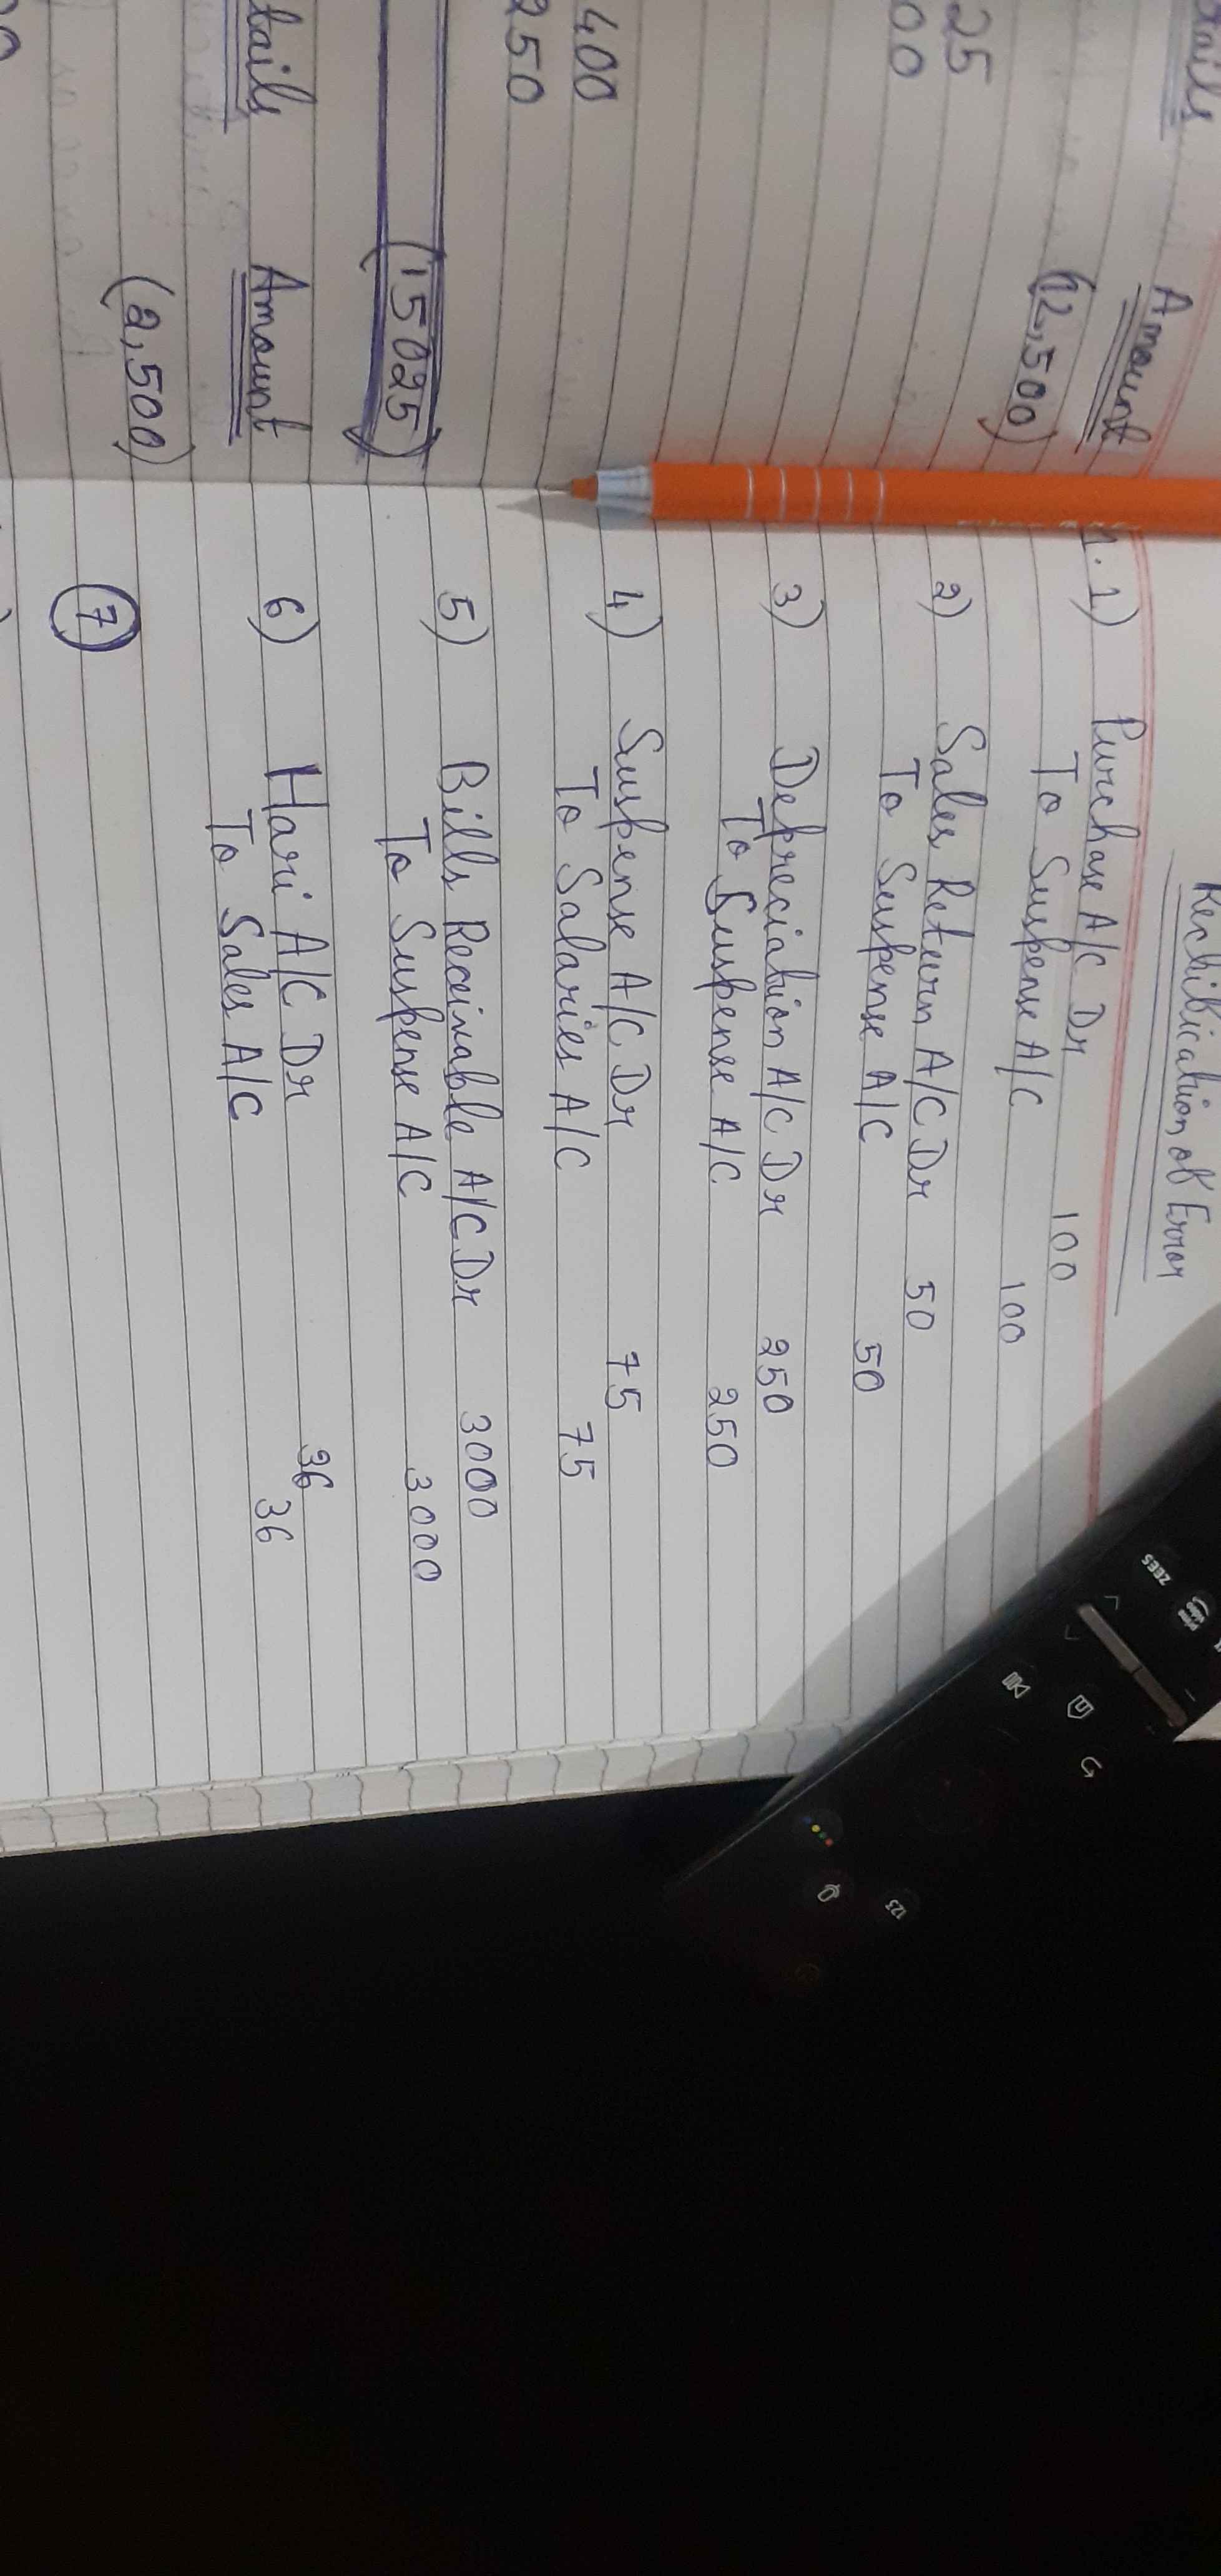 tails Amount
(12,500)
25
00
400
250
(15025)
tails Amount
(2,500)
Rectification of Error
1) Purchase A/C Dr 100
To Suspense A/C 100
2) Sales Return A/C Dr 50
To Suspense A/C 50
3) Depreciation A/C Dr 250
To Suspense A/C 250
4) Suspense A/C Dr 75
To Salaries A/C 75
5) Bills Receivable A/C Dr 3000
To Suspense A/C 3000
6) Hari A/C Dr 36
To Sales A/C 36
7
ZEE5
prime video
123